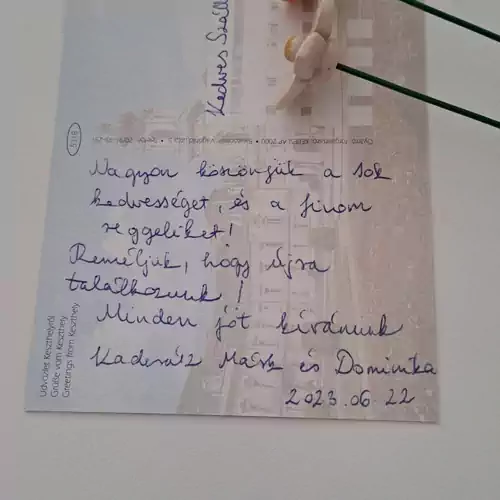 Kedves
5118
Nagyon köszönjük a sok
kedvességet, és a finom
reggeliket!
Reméljük, hogy újra
találkozunk!
Minden jót kívánunk
Márk és Dominika
2023.06.22
Üdvözlet Keszthelyről
Grüße vom Keszthely
Greetings from Keszthely